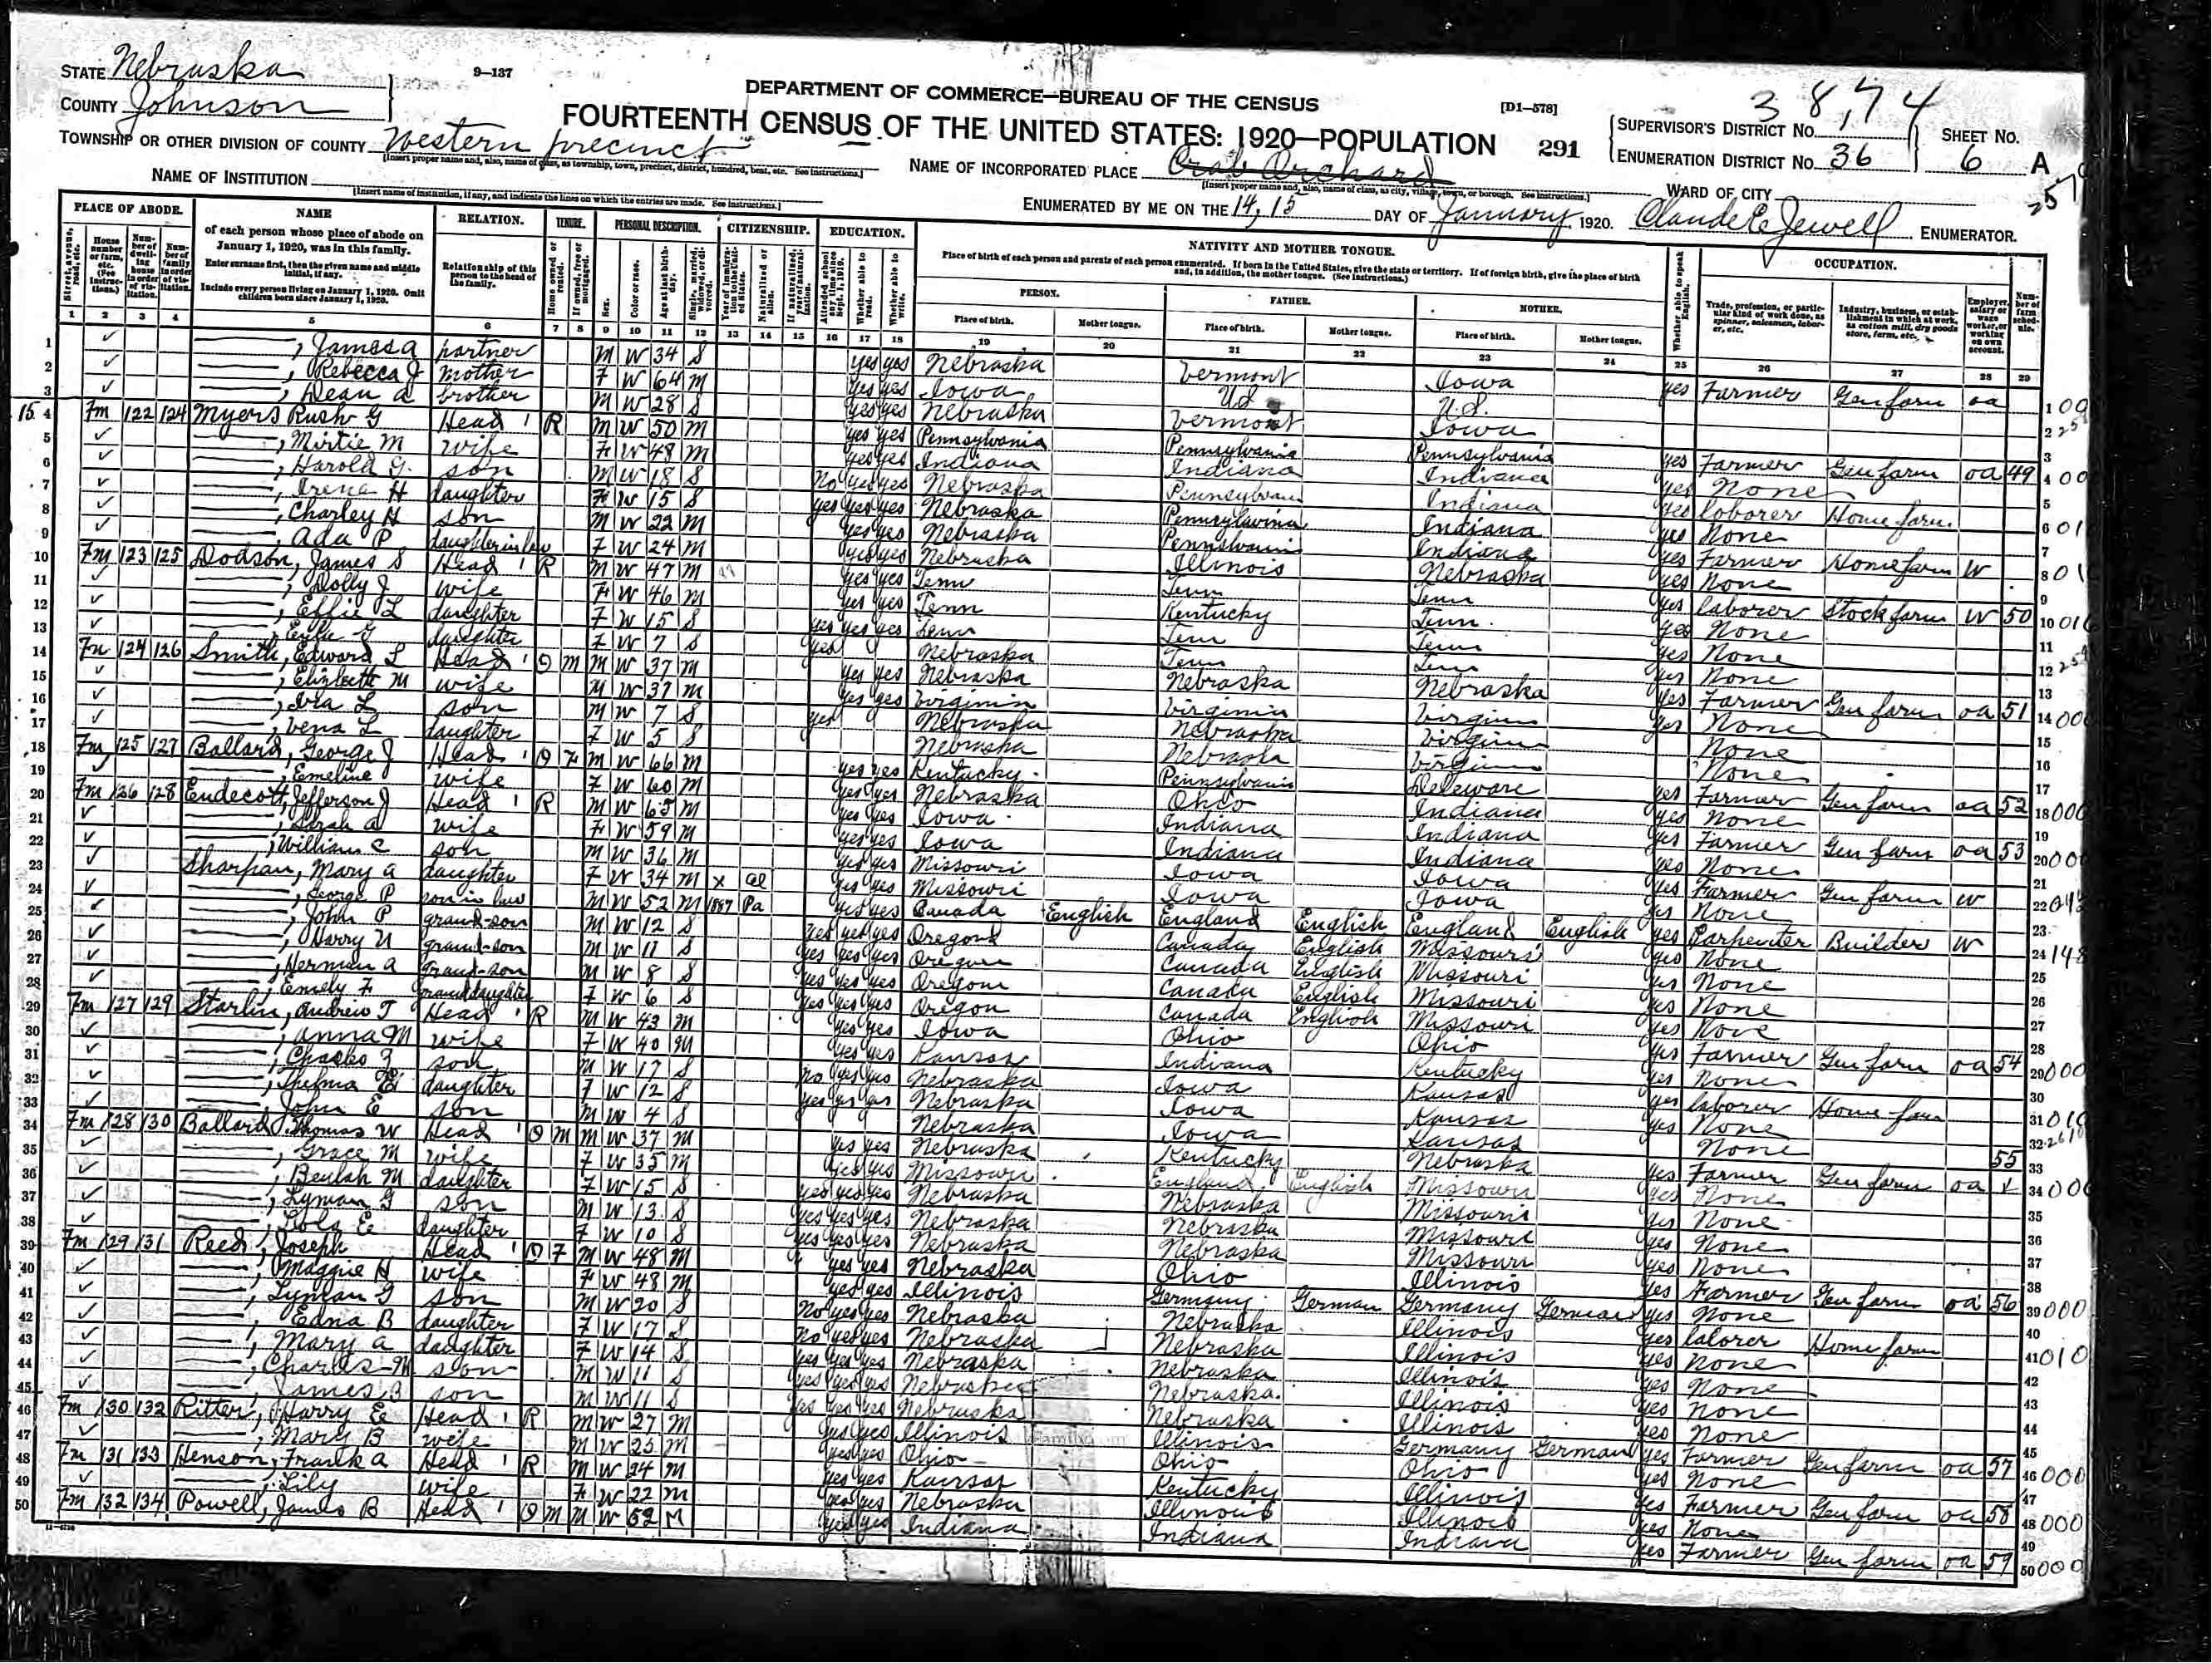 STATE Nebraska
9-137
COUNTY Johnson
DEPARTMENT OF COMMERCE—BUREAU OF THE CENSUS
[D1-578]
38,74
FOURTEENTH CENSUS OF THE UNITED STATES: 1920—POPULATION
291
SUPERVISOR'S DISTRICT No.
ENUMERATION DISTRICT No. 36
SHEET No. 6 A
TOWNSHIP OR OTHER DIVISION OF COUNTY Western precinct
NAME OF INCORPORATED PLACE Crab Orchard
NAME OF INSTITUTION
WARD OF CITY
ENUMERATED BY ME ON THE 14, 15 DAY OF January, 1920. Claude E Jewell ENUMERATOR.
PLACE OF ABODE. NAME RELATION. TENURE. PERSONAL DESCRIPTION. CITIZENSHIP. EDUCATION. NATIVITY AND MOTHER TONGUE. OCCUPATION.
of each person whose place of abode on January 1, 1920, was in this family.
Enter surname first, then the given name and middle initial, if any.
Include every person living on January 1, 1920. Omit children born since January 1, 1920.
Relationship of this person to the head of the family.
Place of birth of each person and parents of each person enumerated. If born in the United States, give the state or territory. If of foreign birth, give the place of birth and, in addition, the mother tongue. (See instructions.)
PERSON. FATHER. MOTHER.
Place of birth. Mother tongue. Place of birth. Mother tongue. Place of birth. Mother tongue.
1 2 3 4 5 6 7 8 9 10 11 12 13 14 15 16 17 18 19 20 21 22 23 24 25 26 27 28 29
1 James A partner M W 34 S yes yes Nebraska Vermont Iowa yes Farmer Gen farm oa
2 Rebecca J mother F W 64 M yes yes Iowa
3 Dean A brother M W 28 S yes yes Nebraska Vermont Iowa
4 Fm 122 124 Myers Rush G Head R M W 50 M yes yes Pennsylvania Pennsylvania Pennsylvania yes Farmer Gen farm oa 49
5 Mirtie M wife F W 48 M yes yes Indiana Indiana Indiana yes None
6 Harold G. son M W 18 S No yes yes Nebraska Indiana yes laborer Home farm
7 Irena H daughter F W 15 S yes yes yes Nebraska Indiana yes None
8 Charley H son M W 22 M yes yes Nebraska Indiana yes Farmer Home farm W
9 Ada P daughterinlaw F W 24 M yes yes Nebraska Illinois Nebraska yes None
10 Fm 123 125 Dodson, James S Head R M W 47 M yes yes Tenn Tenn Tenn yes laborer Stock farm W 50
11 Dolly J wife F W 46 M yes yes Tenn Kentucky Tenn yes None
12 Effie L daughter F W 15 S yes yes yes Tenn Tenn Tenn yes None
13 daughter F W 7 S yes Nebraska Tenn Tenn yes None
14 Fm 124 126 Smith, Edward L Head O M M W 37 M yes yes Nebraska Nebraska Nebraska yes Farmer Gen farm oa 51
15 wife W 37 M yes yes Virginia Virginia yes None
16 Ira L son M W 7 S yes Nebraska Nebraska None
17 Vena L daughter F W 5 S Nebraska Nebraska None
18 Fm 125 127 Ballard, George J Head O F M W 66 M yes yes Kentucky Pennsylvania Deleware yes Farmer Gen farm oa 52
19 Emeline wife F W 60 M yes yes Nebraska Ohio Indiana yes None
20 Fm 126 128 Endecott, Jefferson J Head R M W 65 M yes yes Iowa Indiana Indiana yes Farmer Gen farm oa 53
21 Sarah A wife F W 59 M yes yes Iowa Indiana Indiana yes None
22 William C son M W 36 M yes yes Missouri Iowa Iowa yes Farmer Gen farm W
23 Sharpan, Mary A daughter F W 34 M x al yes yes Missouri Iowa Iowa yes None
24 George P son in law M W 52 M 1887 Pa yes yes Canada English England English England English yes Carpenter Builder W
25 John P grand-son M W 12 S yes yes yes Oregon Canada English Missouri yes None
26 Harry grand-son M W 11 S yes yes yes Oregon Canada English Missouri yes None
27 Herman A grand-son M W 8 S yes yes yes Oregon Canada English Missouri yes None
28 Emely F granddaughter F W 6 S yes yes yes Oregon Canada English Missouri yes None
29 Fm 127 129 Starlin, Andrew T Head R M W 43 M yes yes Iowa Ohio Ohio yes Farmer Gen farm oa 54
30 Anna M wife F W 40 M yes yes Kansas Indiana Kentucky yes None
31 son M W 17 S no yes yes Nebraska Iowa Kansas yes laborer Home farm
32 Thelma E daughter F W 12 S yes yes yes Nebraska Iowa Kansas yes None
33 John E son M W 4 S Nebraska Iowa Kansas None
34 Fm 128 130 Ballard, Thomas W Head O M M W 37 M yes yes Nebraska Kentucky Nebraska yes Farmer Gen farm oa 55
35 Grace M wife F W 35 M yes yes Missouri England English Missouri yes None
36 Beulah M daughter F W 15 S yes yes yes Nebraska Nebraska Missouri yes None
37 Lyman G son M W 13 S yes yes yes Nebraska Nebraska Missouri yes None
38 Lola E daughter F W 10 S yes yes yes Nebraska Nebraska Missouri yes None
39 Fm 129 131 Reed, Joseph Head O F M W 48 M yes yes Nebraska Ohio Illinois yes Farmer Gen farm oa 56
40 Maggie H wife F W 48 M yes yes Illinois Germany German Germany German yes None
41 Lyman G son M W 20 S No yes yes Nebraska Nebraska Illinois yes laborer Home farm
42 Edna B daughter F W 17 S No yes yes Nebraska Nebraska Illinois yes None
43 Mary A daughter F W 14 S yes yes yes Nebraska Nebraska Illinois yes None
44 Charles M son M W 11 S yes yes yes Nebraska Nebraska Illinois yes None
45 James B son M W 11 S yes yes yes Nebraska Nebraska Illinois yes None
46 Fm 130 132 Ritter, Harry E Head R M W 27 M yes yes Illinois Illinois Germany German yes Farmer Gen farm oa 57
47 Mary B wife M W 23 M yes yes Ohio Ohio Ohio yes None
48 Fm 131 133 Henson, Frank A Head R M W 24 M yes yes Kansas Kentucky Illinois yes Farmer Gen farm oa 58
49 Lily wife F W 22 M yes yes Nebraska Illinois Illinois yes None
50 Fm 132 134 Powell, James B Head O M M W 52 M yes yes Indiana Indiana Indiana yes Farmer Gen farm oa 59